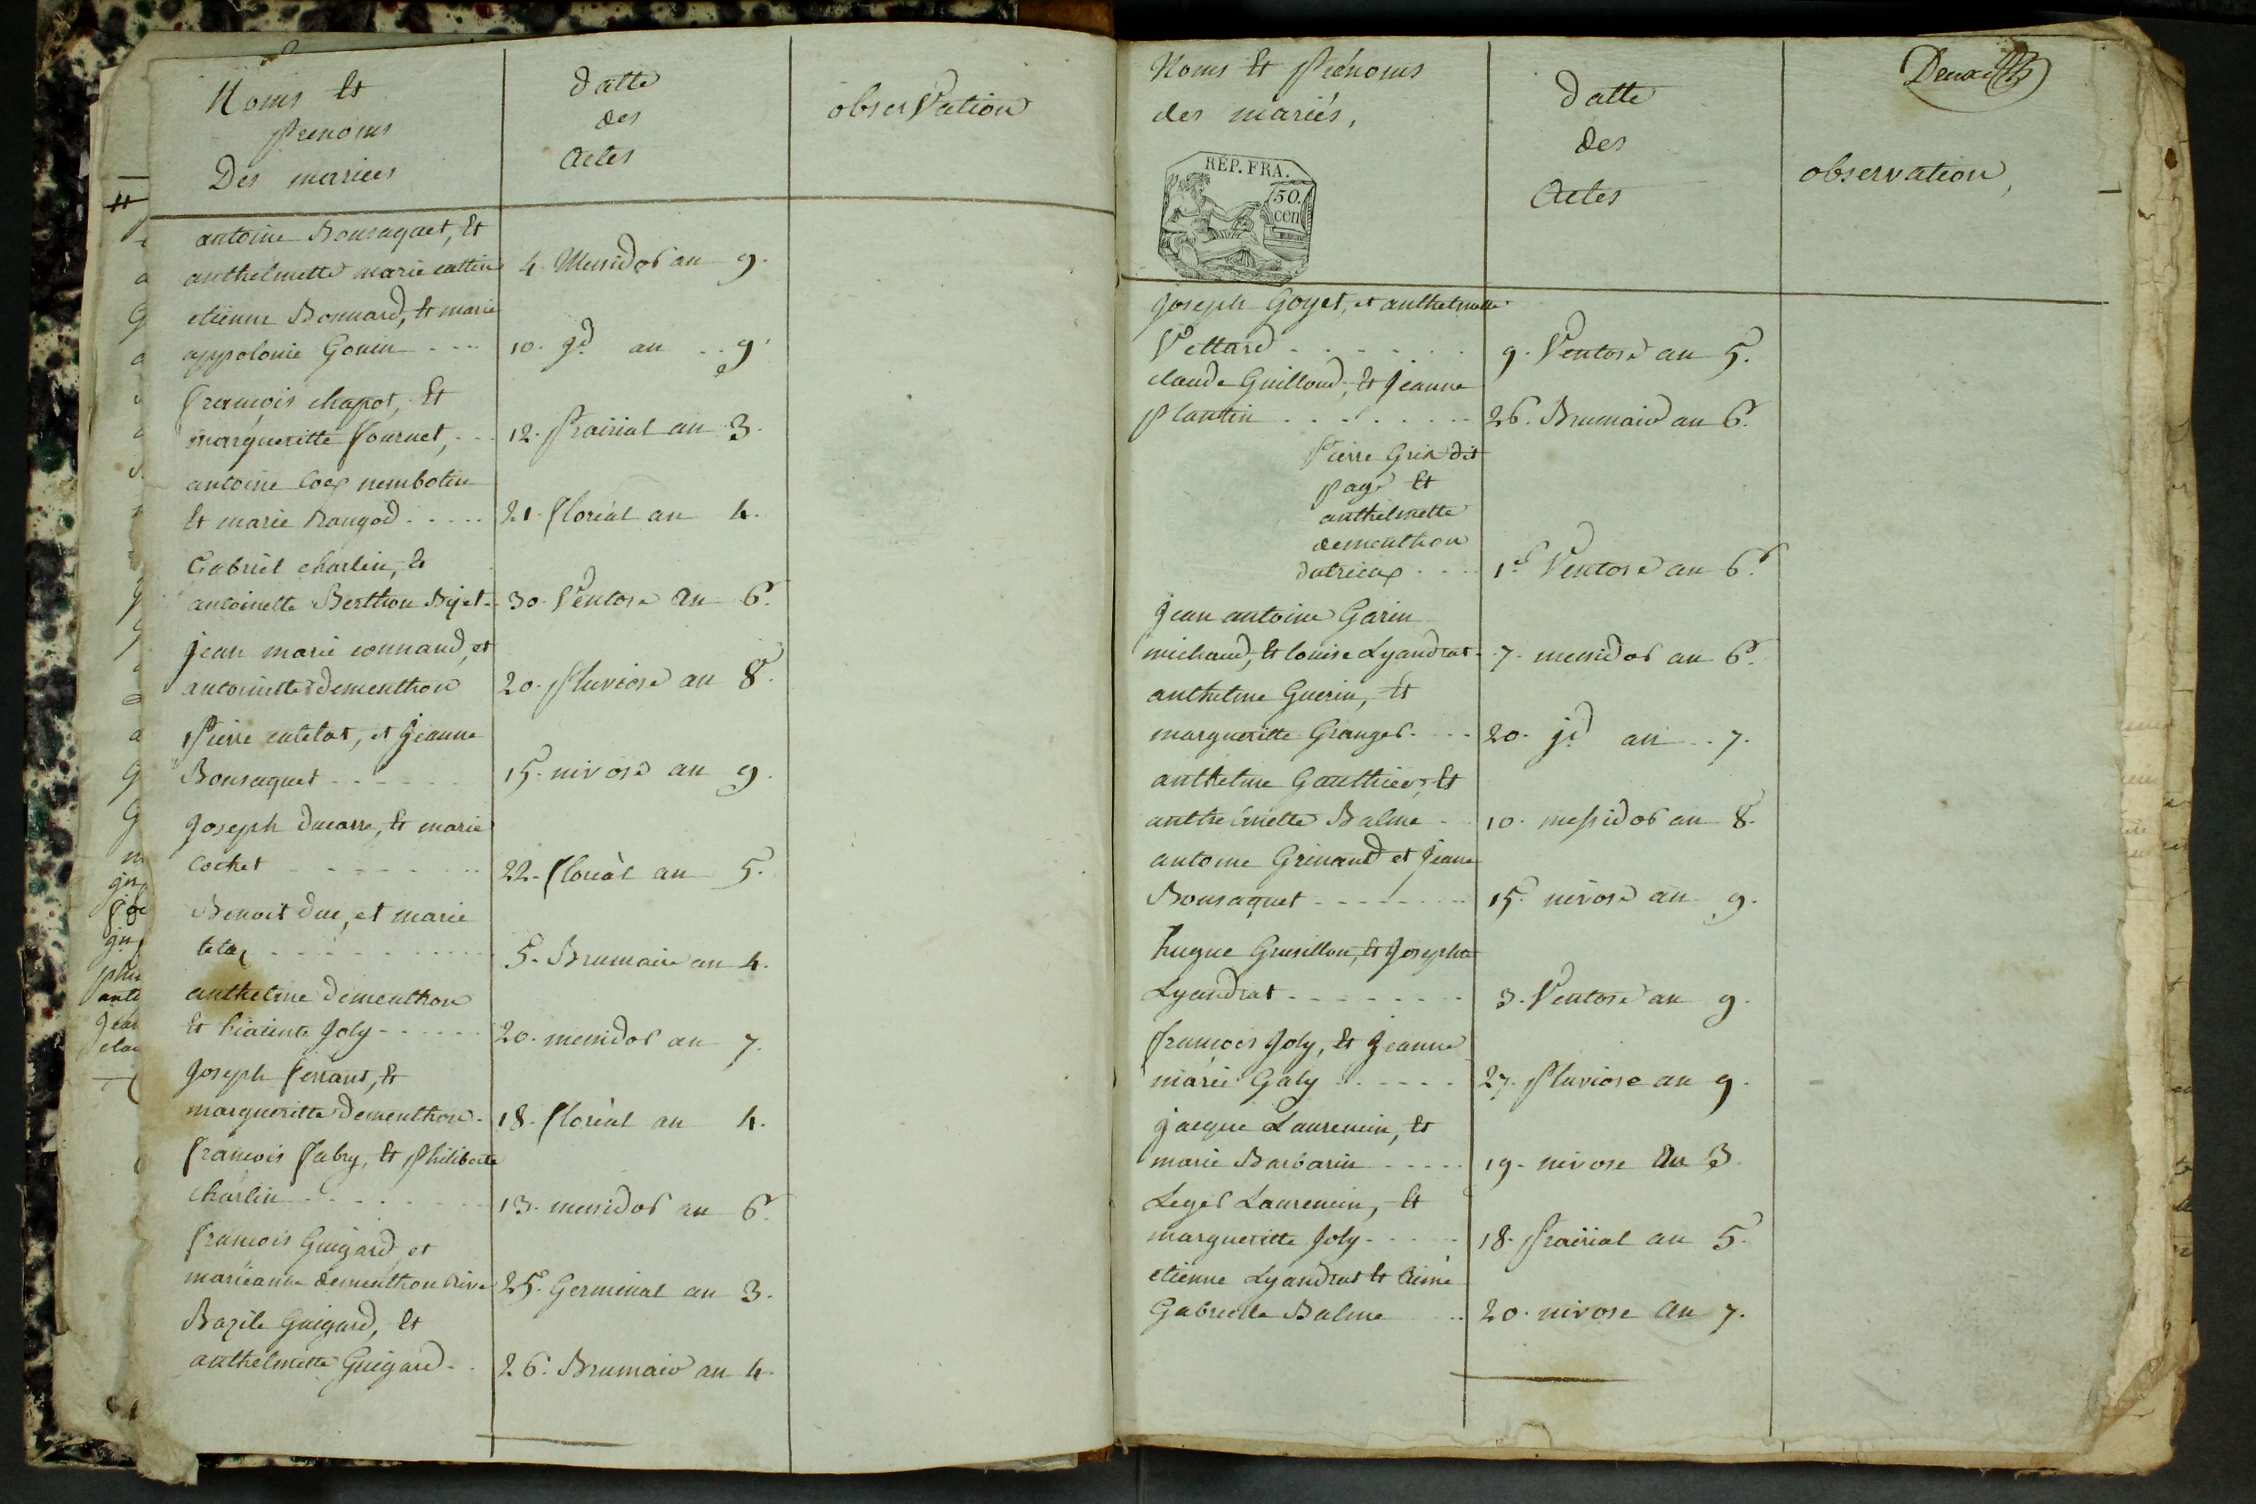 Noms et
Prenoms
Des mariees
datte
des
Actes
observation
antoine Bonsaquet, et
anthelmette marie cattin
4. Messidor an 9.
etienne Bonnard, et marie
appolonie Gonin
10. jd. an 9.
françois chapot, et
margueritte fournet,
12. Prairial an 3.
antoine Coex nembotin
et marie Rangod
21. floréal an 4.
Gabriel charlin, et
antoinette Berthon Bijet
30. Ventose an 6.
jean marie connand, et
antoinette dementhon
20. Pluviose an 8.
Pierre catelat, et Jeanne
Bonsaquet
15. nivose an 9.
Joseph ducarre, et marie
Cochet
22. floréal an 5.
Benoit duc, et marie
5. Brumaire an 4.
anthelme dementhon
et hiacinte Joly
20. messidor an 7.
Joseph ferrant, et
margueritte dementhon
18. floréal an 4.
françois fabry, et Philiberte
charlin
13. messidor an 6.
francois Guigard, et
marieanne dementhon Rive
25. Germinal an 3.
Bazile Guigard, et
anthelmette Guigard
26. Brumair an 4.
Noms et Prénoms
des mariés,
REP. FRA.
50.
cen
datte
des
Actes
observation,
Joseph Goyet, et anthelmette
Vettard
9. Ventose an 5.
claude Guilloud, et Jeanne
Plantin
26. Brumair an 6.
Pierre Grix dit
page et
anthelmette
dementhon
dutrieux
1er Ventose an 6.
Jean antoine Garin
michaud, et louise Lyandrat
7. messidor an 6.
anthelme Guerin, et
margueritte Granger
20. jd. an 7.
anthelme Gauthier, et
anthelmette Balme
10. messidor an 8.
antoine Grinand et Jeanne
Bonsaquet
15. nivose an 9.
hugue Grusillon, et Josephte
Lyandrat
3. Ventose an 9.
francois Joly, et Jeanne
marie Galy
27. Pluviose an 9.
jacque Laurencin, et
marie Barbarin
19. nivose an 3.
Leger Laurencin, et
margueritte Joly
18. Prairial an 5.
etienne Lyandrat et Aimé
Gabrielle Balme
20. nivose an 7.